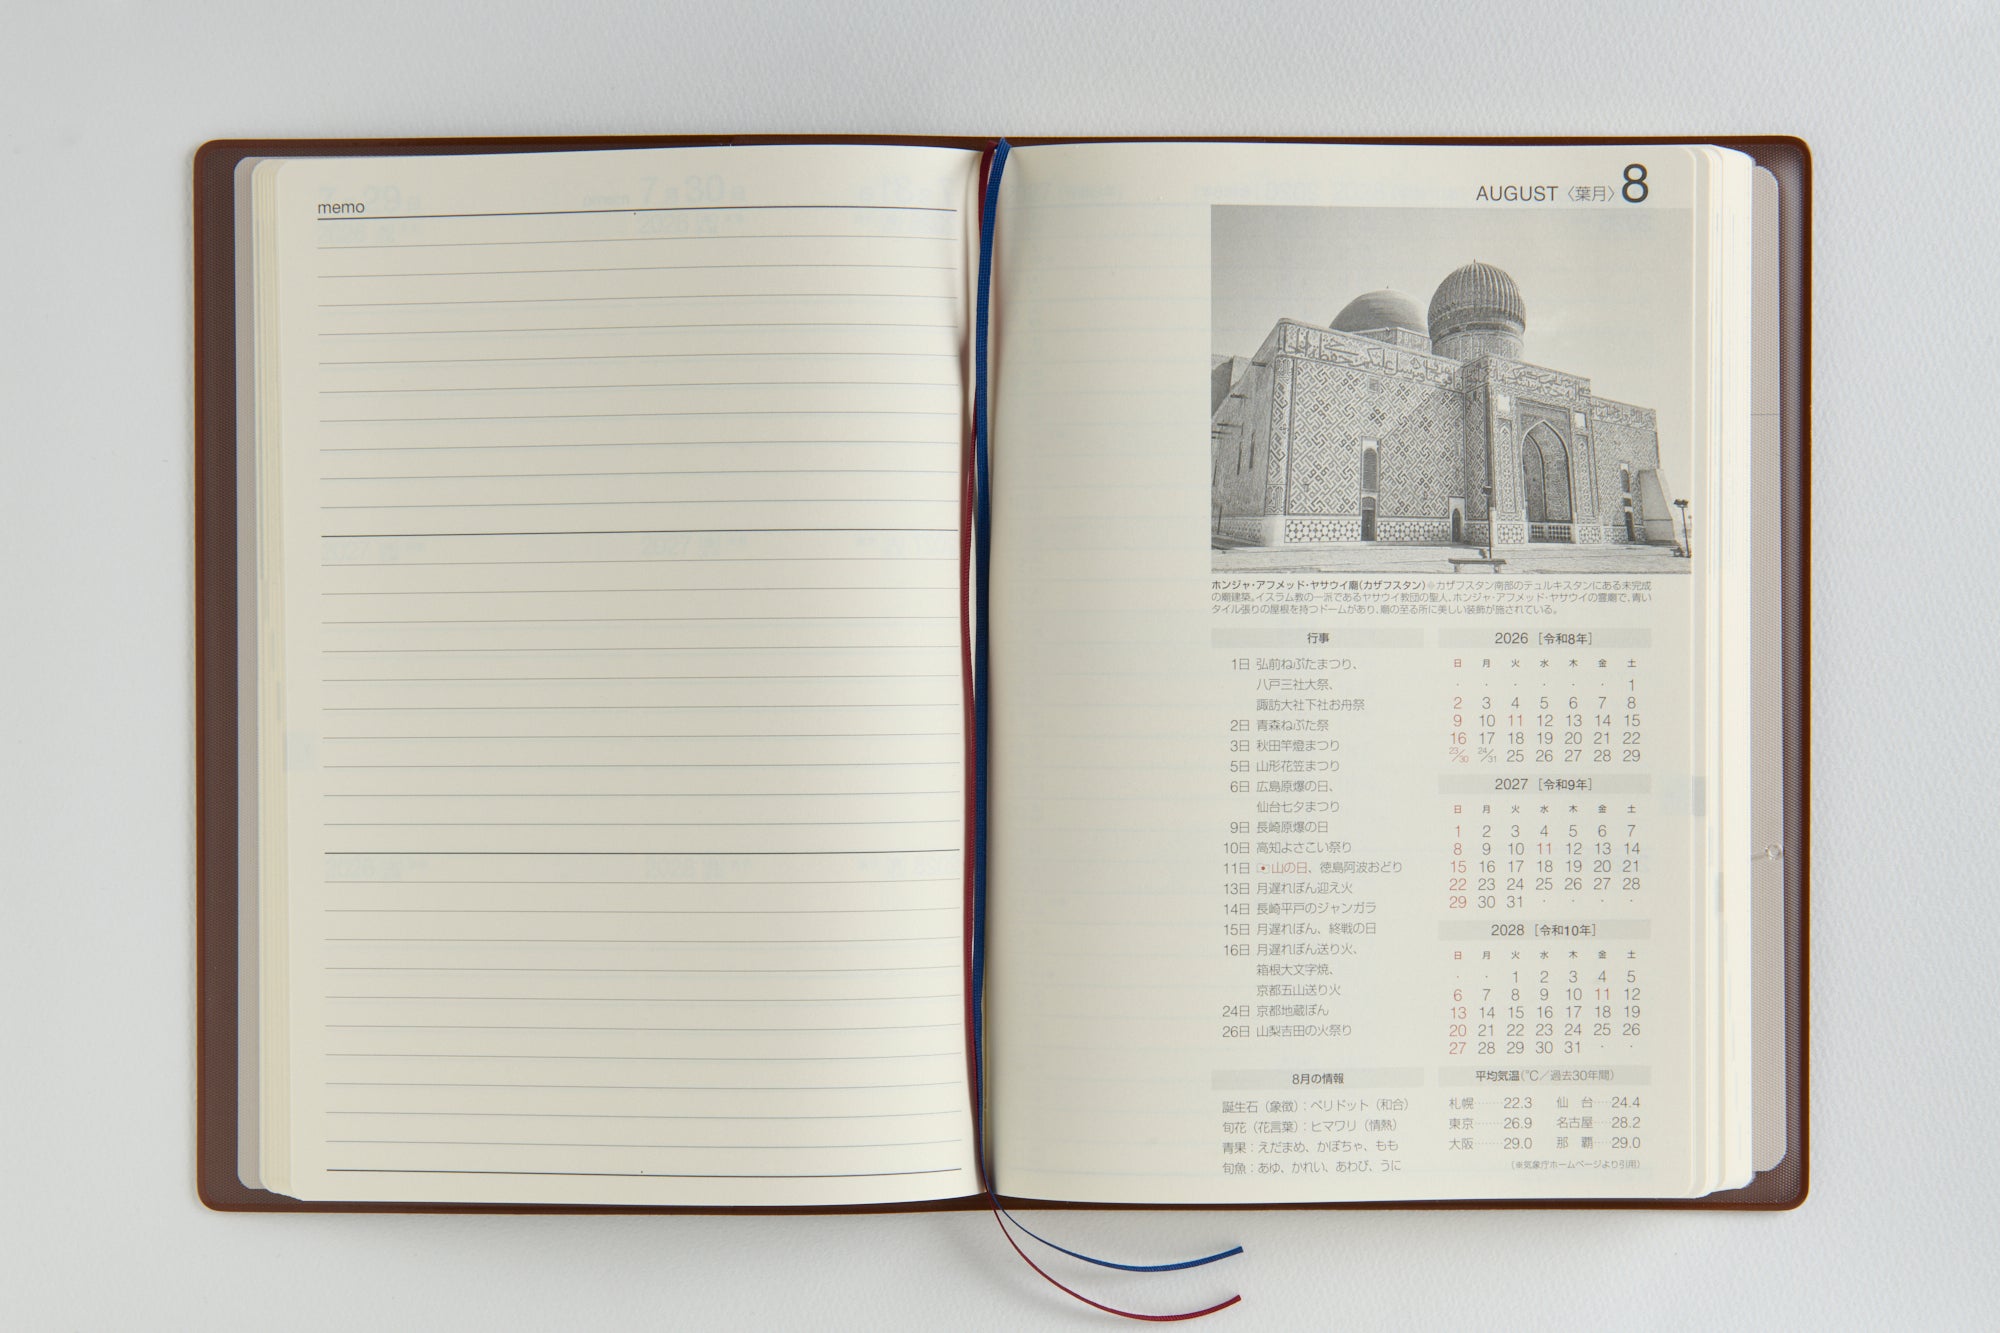 memo
AUGUST〈葉月〉8
ホンジャ・アフメッド・ヤサウイ廟(カザフスタン)※カザフスタン南部のテュルキスタンにある未完成
の廟建築。イスラム教の一派であるヤサウイ教団の聖人、ホンジャ・アフメッド・ヤサウイの霊廟で、青い
タイル張りの屋根を持つドームがあり、廟の至る所に美しい装飾が施されている。
行事
1日 弘前ねぷたまつり、
八戸三社大祭、
諏訪大社下社お舟祭
2日 青森ねぶた祭
3日 秋田竿燈まつり
5日 山形花笠まつり
6日 広島原爆の日、
仙台七夕まつり
9日 長崎原爆の日
10日 高知よさこい祭り
11日 山の日、徳島阿波おどり
13日 月遅れぼん迎え火
14日 長崎平戸のジャンガラ
15日 月遅れぼん、終戦の日
16日 月遅れぼん送り火、
箱根大文字焼、
京都五山送り火
24日 京都地蔵ぼん
26日 山梨吉田の火祭り
2026 [令和8年]
日 月 火 水 木 金 土
・ ・ ・ ・ ・ ・ 1
2 3 4 5 6 7 8
9 10 11 12 13 14 15
16 17 18 19 20 21 22
23/30 24/31 25 26 27 28 29
2027 [令和9年]
日 月 火 水 木 金 土
1 2 3 4 5 6 7
8 9 10 11 12 13 14
15 16 17 18 19 20 21
22 23 24 25 26 27 28
29 30 31 ・ ・ ・ ・
2028 [令和10年]
日 月 火 水 木 金 土
・ ・ 1 2 3 4 5
6 7 8 9 10 11 12
13 14 15 16 17 18 19
20 21 22 23 24 25 26
27 28 29 30 31 ・ ・
8月の情報
誕生石（象徴）：ペリドット（和合）
旬花（花言葉）：ヒマワリ（情熱）
青果：えだまめ、かぼちゃ、もも
旬魚：あゆ、かれい、あわび、うに
平均気温(℃／過去30年間)
札幌……22.3 仙台…24.4
東京……26.9 名古屋…28.2
大阪……29.0 那覇…29.0
(※気象庁ホームページより引用)